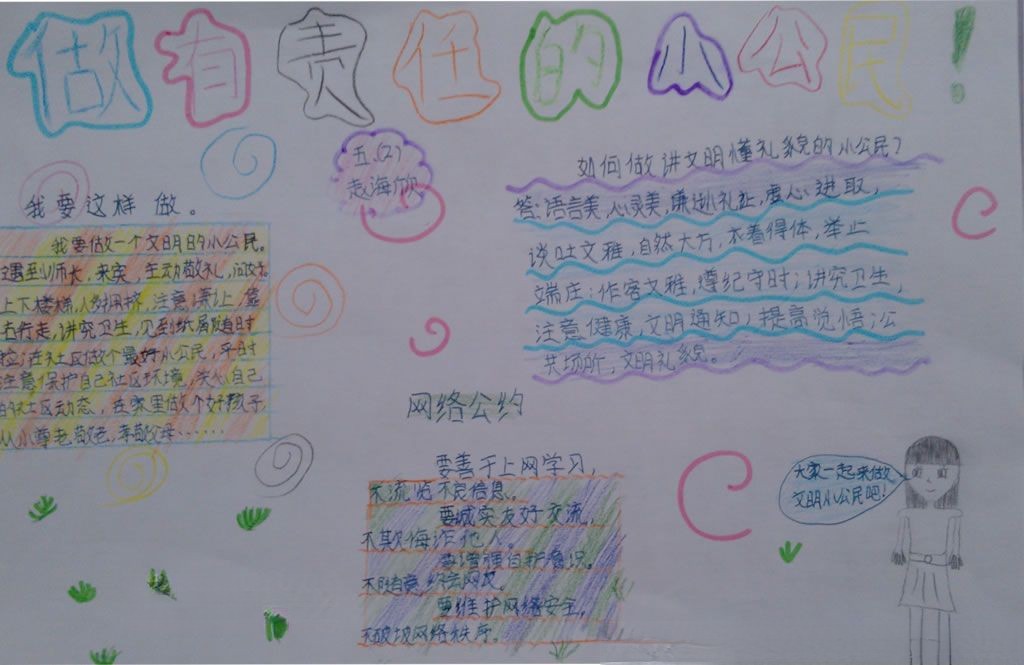 做有责任的小公民!
五.(2)
赵海欣
我要这样做。
我要做一个文明的小公民。
遇到师长,来宾,主动敬礼,问好.
上下楼梯,人多拥挤,注意谦让,靠
右行走,讲究卫生,见到纸屑随时
捡;在社区做个最好小公民,平时
注意保护自己社区环境,关心自己
的社区动态,在家里做个好孩子,
从小尊老敬老,孝敬父母……
如何做讲文明懂礼貌的小公民?
答:语言美,心灵美,谦逊礼让,虚心进取,
谈吐文雅,自然大方,衣着得体,举止
端庄;作客文雅,遵纪守时;讲究卫生,
注意健康,文明通知;提高觉悟;公
共场所,文明礼貌。
网络公约
要善于上网学习,
不流览不良信息。
要诚实友好交流,
不欺侮诈他人。
要增强自护意识。
不随意约会网友。
要维护网络安全,
不破坡网络秩序。
大家一起来做
文明小公民吧!